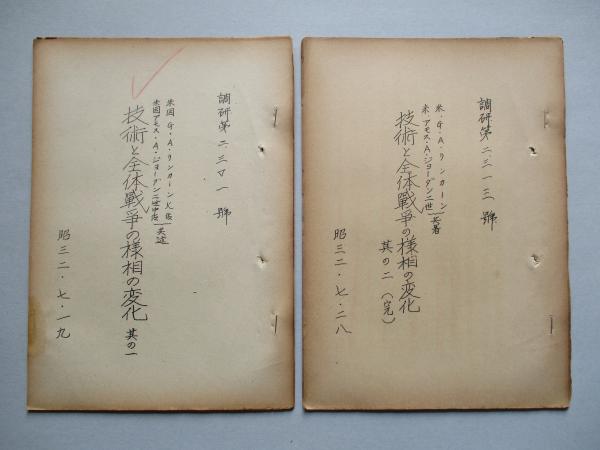 調研第二三一三號
米・G・A・リンカーン
米・アモス・A・ジョーダン二世
共著
技術と全体戰争の様相の変化
其の二(完)
昭三二・七・二八
調研第二三〇一號
米国G・A・リンカーン大佐
米国アモス・A・ジョーダン二世中佐
共述
技術と全体戰争の様相の変化 其の一
昭三二・七・一九